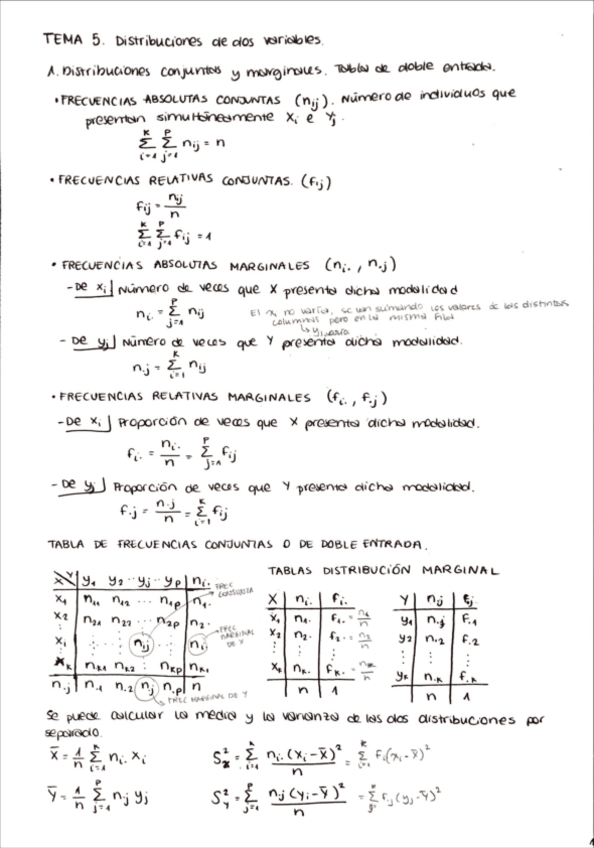 TEMA 5. Distribuciones de dos variables.
1. Distribuciones conjuntas y marginales. Tabla de doble entrada.
• FRECUENCIAS ABSOLUTAS CONJUNTAS (nij). Número de individuos que
presentan simultáneamente Xi e Yj.
k Σ i=1 p Σ j=1 nij = n
• FRECUENCIAS RELATIVAS CONJUNTAS. (fij)
fij = nij / n
k Σ i=1 p Σ j=1 fij = 1
• FRECUENCIAS ABSOLUTAS MARGINALES (ni. , n.j)
- De xi| Número de veces que X presenta dicha modalidad
ni. = p Σ j=1 nij
El xi no varía, se van sumando los valores de las distintas
columnas pero en la misma fila
↳ yj varía
- De yj| Número de veces que Y presenta dicha modalidad.
n.j = k Σ i=1 nij
• FRECUENCIAS RELATIVAS MARGINALES (fi. , f.j)
- De xi| Proporción de veces que X presenta dicha modalidad.
fi. = ni. / n = p Σ j=1 fij
- De yj| Proporción de veces que Y presenta dicha modalidad.
f.j = n.j / n = k Σ i=1 fij
TABLA DE FRECUENCIAS CONJUNTAS O DE DOBLE ENTRADA.
TABLAS DISTRIBUCIÓN MARGINAL
X Y y1 y2 ·· yj ·· yp ni.
x1 n11 n12 ... n1p n1.
x2 n21 n22 ... n2p n2.
xi nij ni.
xk nk1 nk2 nkp nk1
n.j n.1 n.2 nj n.p n
FREC CONJUNTA
FREC MARGINAL DE X
FREC MARGINAL DE Y
X ni. fi.
x1 n1. f1. = n1 / n
x2 n2. f2. = n2 / n
xk nk. fk. = nk / n
n 1
Y nij fj
y1 n.1 f.1
y2 n.2 f.2
yk n.k f.k
n 1
Se puede calcular la media y la varianza de las dos distribuciones por
separado.
X̄ = 1/n k Σ i=1 ni. xi S²x = k Σ i=1 ni. (xi - x̄)² / n = k Σ i=1 fi (xi - x̄)²
Ȳ = 1/n p Σ j=1 n.j yj S²y = p Σ j=1 n.j (yi - ȳ)² / n = Σ f.j (yj - ȳ)²
1